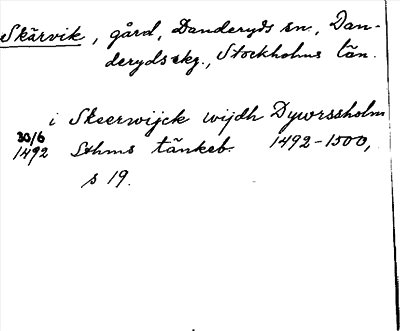 Skärvik, gård, Danderyds sn., Dan-
deryds skg., Stockholms län.
i Skeerwijck wijdh Dywrssholm
30/6
1492 Sthms tänkeb. 1492-1500,
s 19.